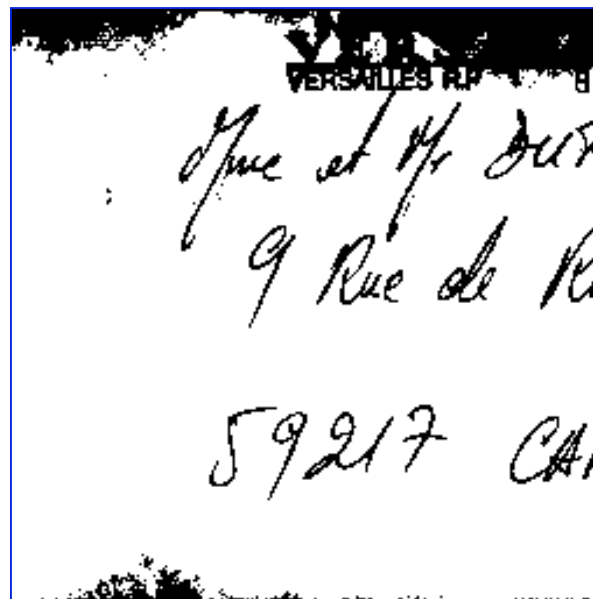 VERSAILLES R.P
Mme et Mr
9 Rue de
59217